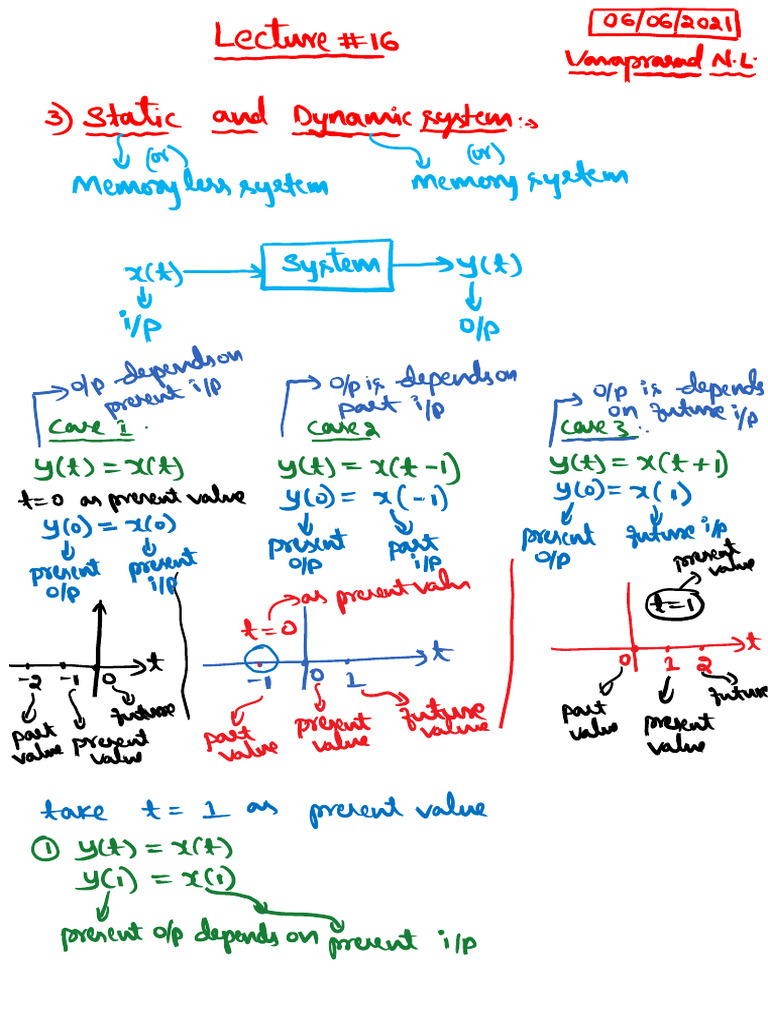 Lecture #16
06/06/2021
Vanaprasad N.L.
3) Static and Dynamic system:->
(or) (or)
Memoryless system Memory system
x(t) System y(t)
i/p o/p
o/p depends on
present i/p
Case 1.
y(t) = x(t)
t=0 as present value
y(0) = x(0)
present o/p
present i/p
-2 -1 0 t
past value
present value
future
o/p is depends on
past i/p
Case 2
y(t) = x(t-1)
y(0) = x(-1)
present o/p
past i/p
as present valu
t=0
-1 0 1 t
past value
present value
future value
o/p is depends
on future i/p
Case 3:.
y(t) = x(t+1)
y(0) = x(1)
present o/p
future i/p
present value
t=1
0 1 2 t
past value
present value
future
take t = 1 as present value
① y(t) = x(t)
y(1) = x(1)
present o/p depends on present i/p